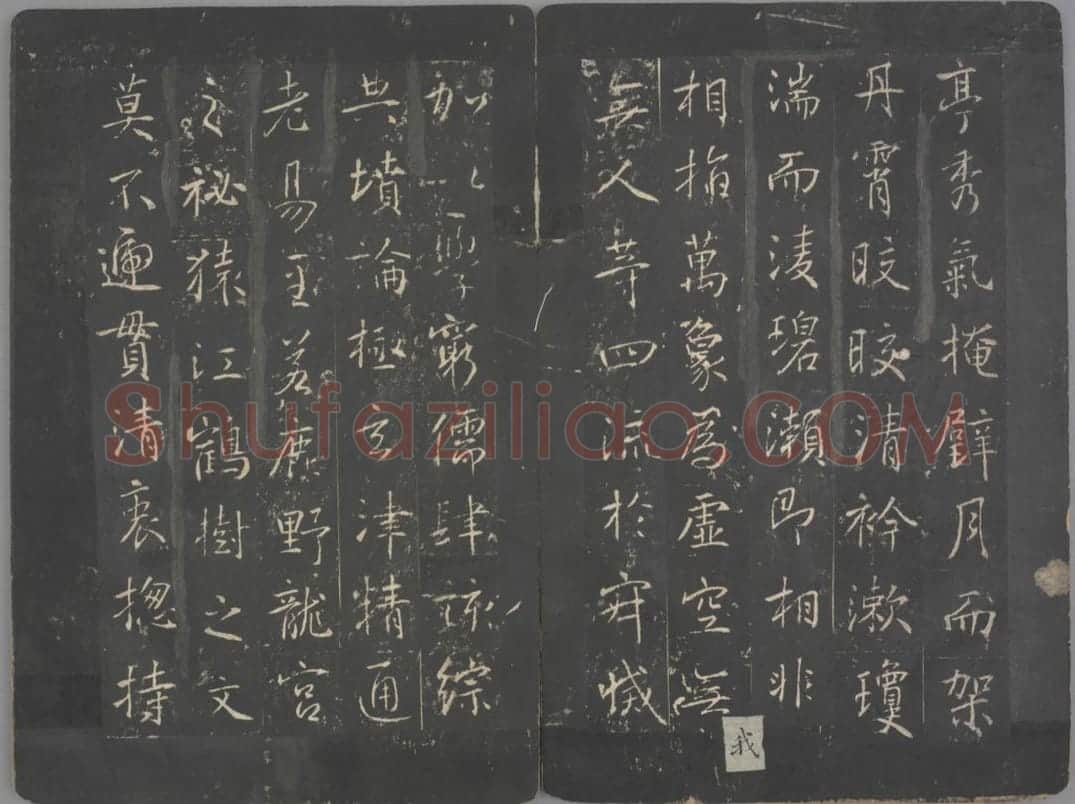 亭秀氣掩辟月而架
丹霄皎皎清衿漱瓊
湍而淩碧瀨即相非
相指萬象為虛空無
我
無人等四流於寂滅
加以學窮儒肆該綜
典墳論極玄津精通
老易至若鹿野龍宮
之祕猿江鶴樹之文
莫不遍貫清衷揔持
Shufaziliao.COM